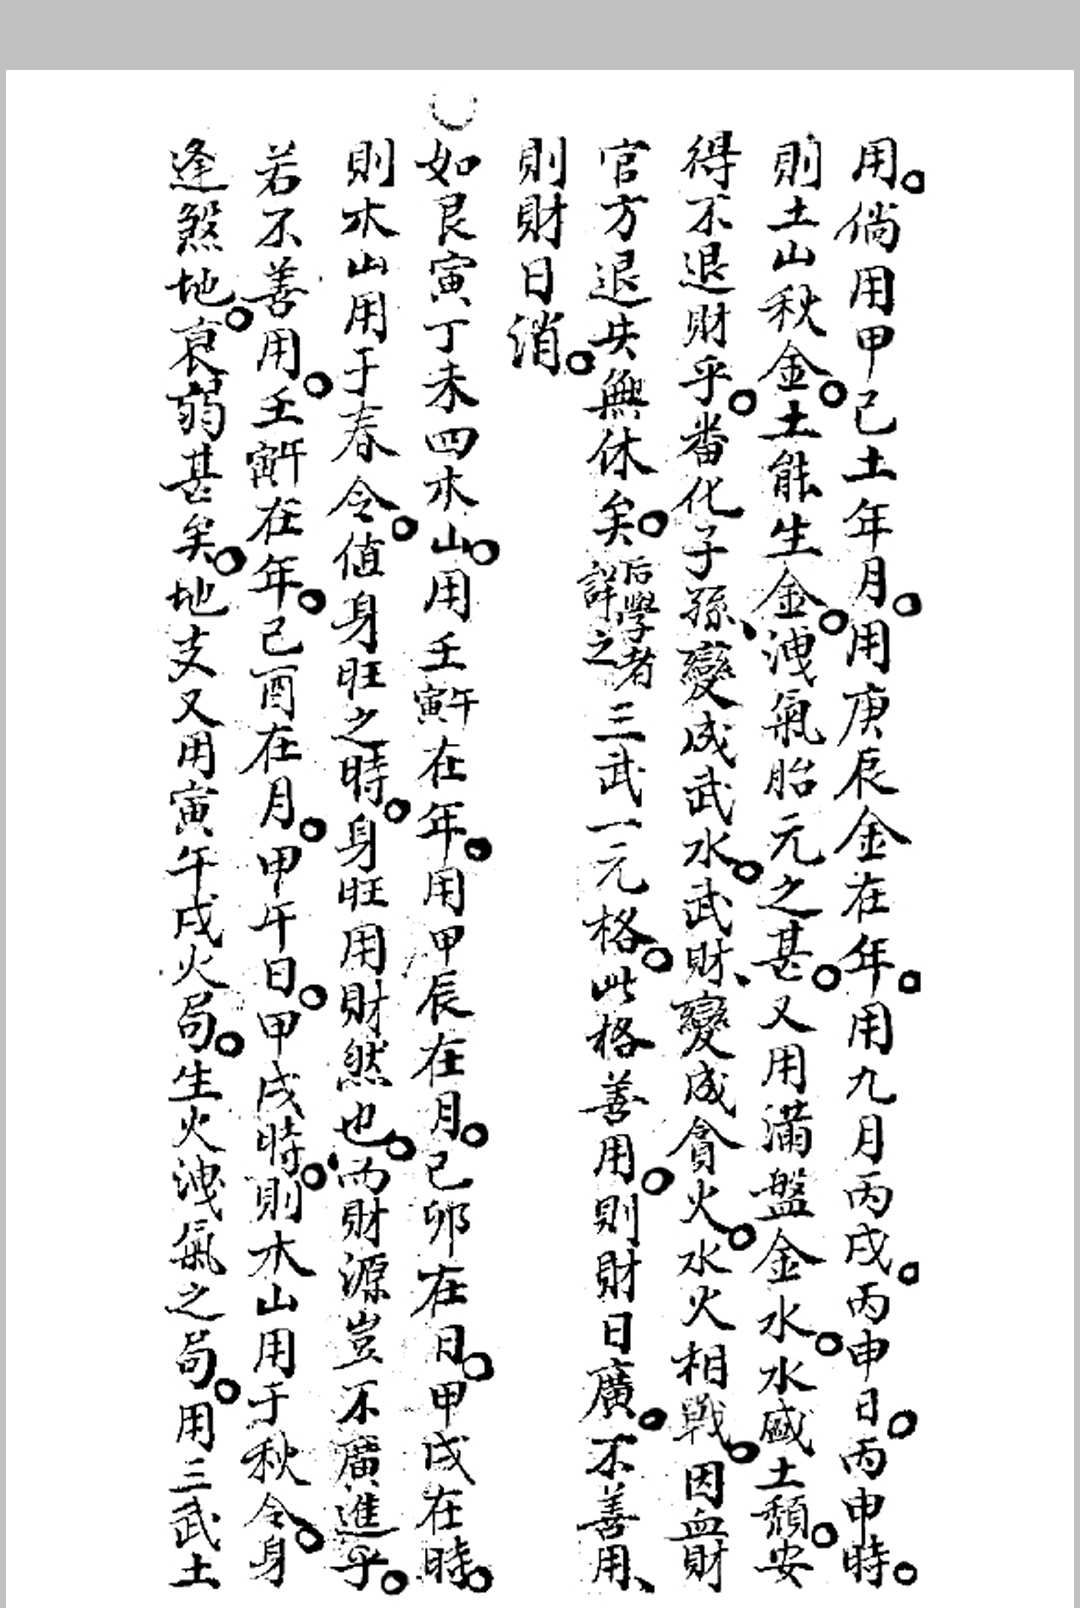 用。倘用甲己土年月。用庚辰金在年。用九月丙戌。丙申日。丙申時。
則土山秋金。土能生金。洩氣胎元之甚。又用滿盤金水。水盛土頹。安
得不退財乎。番化子孫、變成武水。武財、變成貪火。水火相戰。因血財
官方退失無休矣。后學者詳之三武一元格。此格善用。則財日廣。不善用、
則財日消。
如艮寅丁未四木山。用壬寅午在年。用甲辰在月。己卯在日。甲戌在時。
則木山用于春令。值身旺之時。身旺用財然也。而財源豈不廣進乎。
若不善用。壬寅午在年。己酉在月。甲午日。甲戌時。則木山用于秋令。身
逢煞地。衰弱甚矣。地支又用寅午戌火局。生火洩氣之局。用三武土